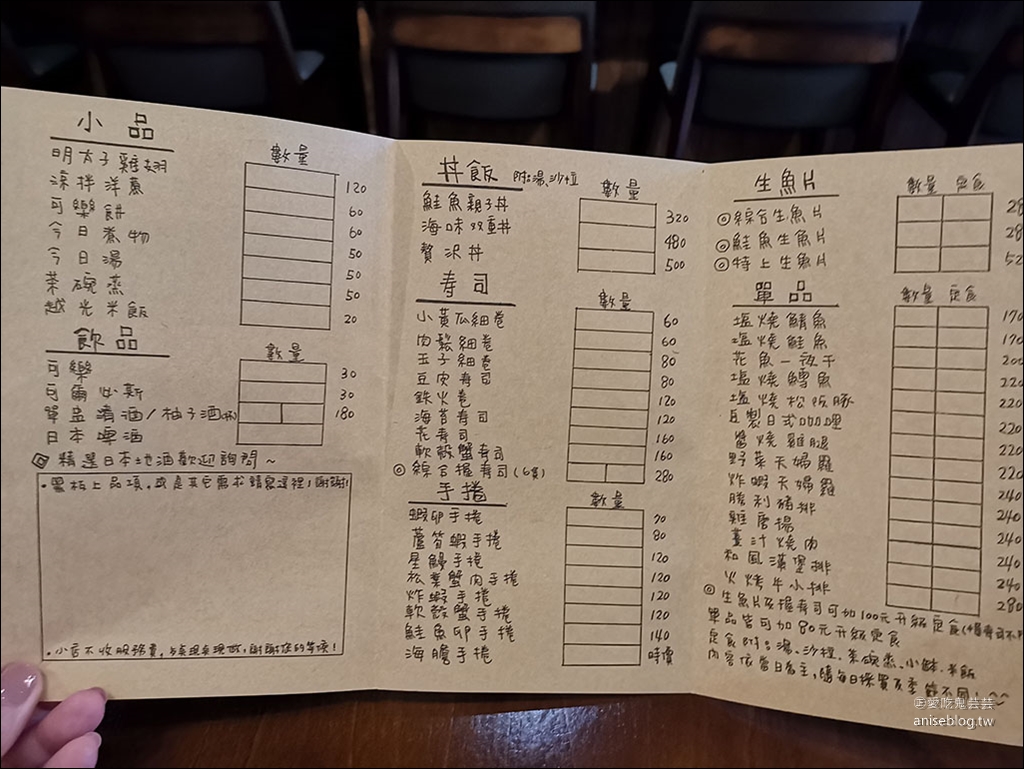 小品
數量
明太子雞翅 120
涼拌洋蔥 60
可樂餅 60
今日煮物 50
今日湯 50
茶碗蒸 50
越光米飯 20
飲品
數量
可樂 30
可爾必斯 30
單盅清酒/柚子酒(杯) 180
日本啤酒
◎精選日本地酒歡迎詢問~
•黑板上品項,或是其它需求請寫這裡,謝謝!
•小店不收服務費,
丼飯 附:湯、沙拉
數量
鮭魚親子丼 320
海味双重丼 480
贅沢丼 500
寿司
數量
小黃瓜細卷 60
肉鬆細卷 60
玉子細卷 80
豆皮寿司 80
鉄火卷 120
海苔寿司 120
花寿司 160
軟殼蟹寿司 160
◎綜合握寿司(6貫) 280
手捲
數量
蝦卵手捲 70
蘆筍蝦手捲 80
星鰻手捲 120
松葉蟹肉手捲 120
炸蝦手捲 120
軟殼蟹手捲 120
鮭魚卵手捲 140
海膽手捲 時價
生魚片
數量 定食
◎綜合生魚片
◎鮭魚生魚片
◎特上生魚片
單品
數量 定食
塩燒鯖魚 170
塩燒鮭魚 170
花魚一夜干 200
塩燒鱈魚 220
塩燒松阪豚 220
自製日式咖哩 220
醬燒雞腿 220
野菜天婦羅 220
炸蝦天婦羅 240
勝利豬排 240
雞唐揚 240
薑汁燒肉 240
和風漢堡排 240
火烤牛小排 280
◎生魚片及握寿司可加100元升級定食
單品皆可加80元升級定食
定食附:湯、沙拉、茶碗蒸、小缽、米飯
內容依當日為主,隨每日採買及季節不同!
@愛吃鬼芸芸
aniseblog.tw